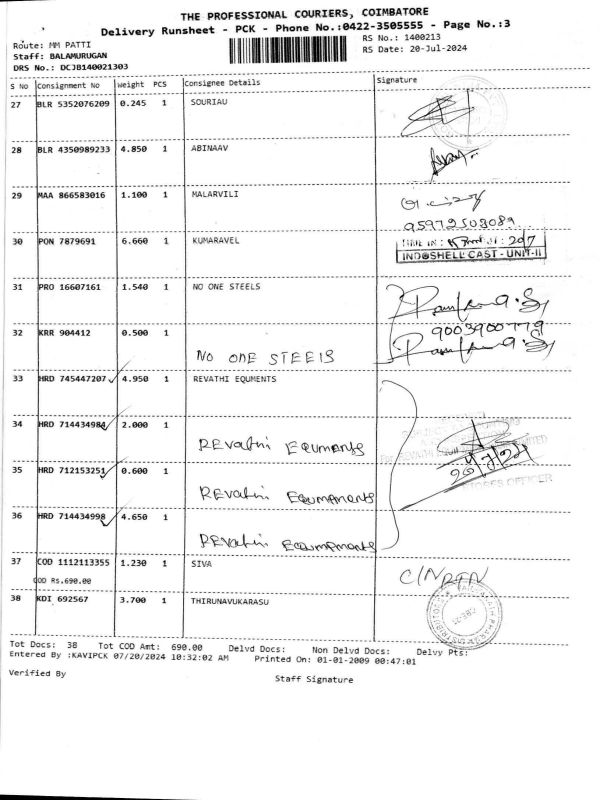 THE PROFESSIONAL COURIERS, COIMBATORE
Delivery Runsheet - PCK - Phone No.:0422-3505555 - Page No.:3
Route: MM PATTI
RS No.: 1400213
Staff: BALAMURUGAN
RS Date: 20-Jul-2024
DRS No.: DCJB140021303
S No Consignment No Weight PCS Consignee Details Signature
27 BLR 5352076209 0.245 1 SOURIAU
28 BLR 4350989233 4.850 1 ABINAAV
29 MAA 866583016 1.100 1 MALARVILI
95972503089
30 PON 7879691 6.660 1 KUMARAVEL
TIME IN :
INDOSHELL CAST - UNIT-II
31 PRO 16607161 1.540 1 NO ONE STEELS
9003900779
32 KRR 904412 0.500 1
NO ONE STEEIS
33 HRD 745447207 4.950 1 REVATHI EQUMENTS
34 HRD 714434984 2.000 1
REVathi EQUMANTS
35 HRD 712153251 0.600 1
20/7/24
STORES OFFICER
REVathi EQUMPAMANTS
36 HRD 714434998 4.650 1
REVathi EQUMPAMANTS
37 COD 1112113355 1.230 1 SIVA
COD Rs.690.00
38 KDI 692567 3.700 1 THIRUNAVUKARASU
Tot Docs: 38 Tot COD Amt: 690.00 Delvd Docs: Non Delvd Docs: Delvy Pts:
Entered By :KAVIPCK 07/20/2024 10:32:02 AM Printed On: 01-01-2009 00:47:01
Verified By
Staff Signature